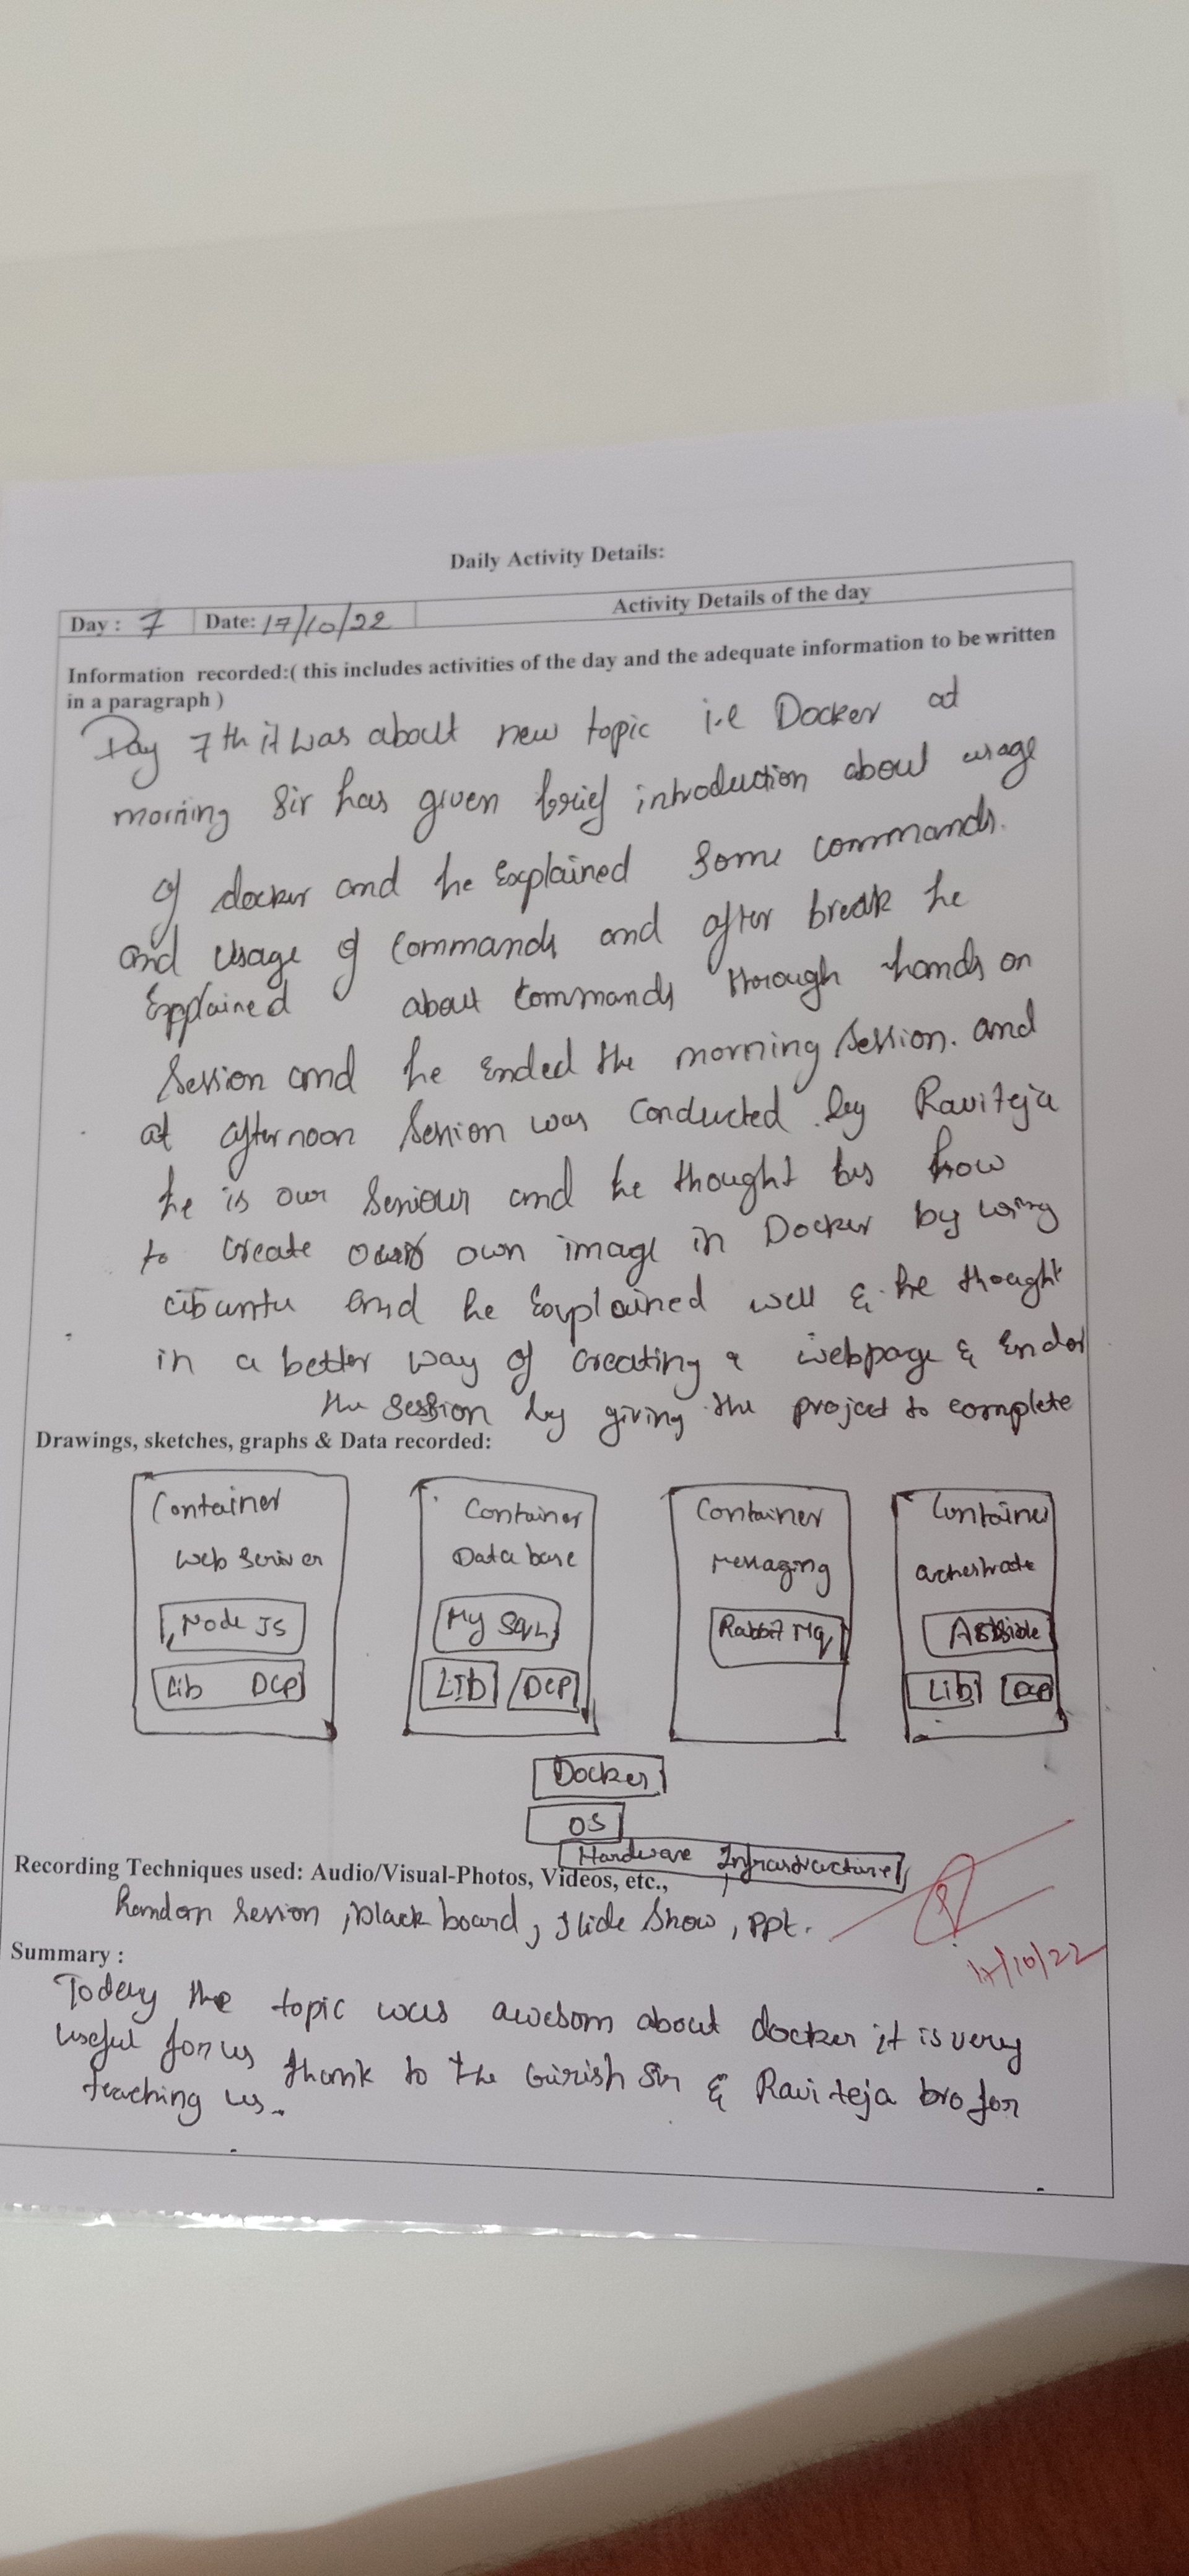 Daily Activity Details:
Day : 7 Date: 17/10/22 Activity Details of the day
Information recorded:( this includes activities of the day and the adequate information to be written
in a paragraph )
Day 7th it was about new topic i.e Docker at
morning Sir has given brief introduction about usage
of docker and he Explained Some commands.
and Usage of Commands and after break he
Explained about Commands through hands on
Session and he Ended the morning Session. and
at afternoon Session was Conducted by Raviteja
he is our Seniour and he thought us how
to Create own image in Docker by using
ubuntu and he Explained well & he thought
in a better way of Creating a webpage & Ended
the Session by giving the project to complete
Drawings, sketches, graphs & Data recorded:
Container Container Container Container
Web Server Data base Messaging Orchestrate
Node JS My SQL Rabbit Mq
Lib DCP LIb DCP Lib DCP
Docker
OS
Hardware Infrastructure
Recording Techniques used: Audio/Visual-Photos, Videos, etc.,
Session, black board, Slide Show, ppt.
17/10/22
Summary :
Today the topic was awesom about docker it is very
useful for us thank to the Girish Sir & Ravi teja bro for
teaching us.